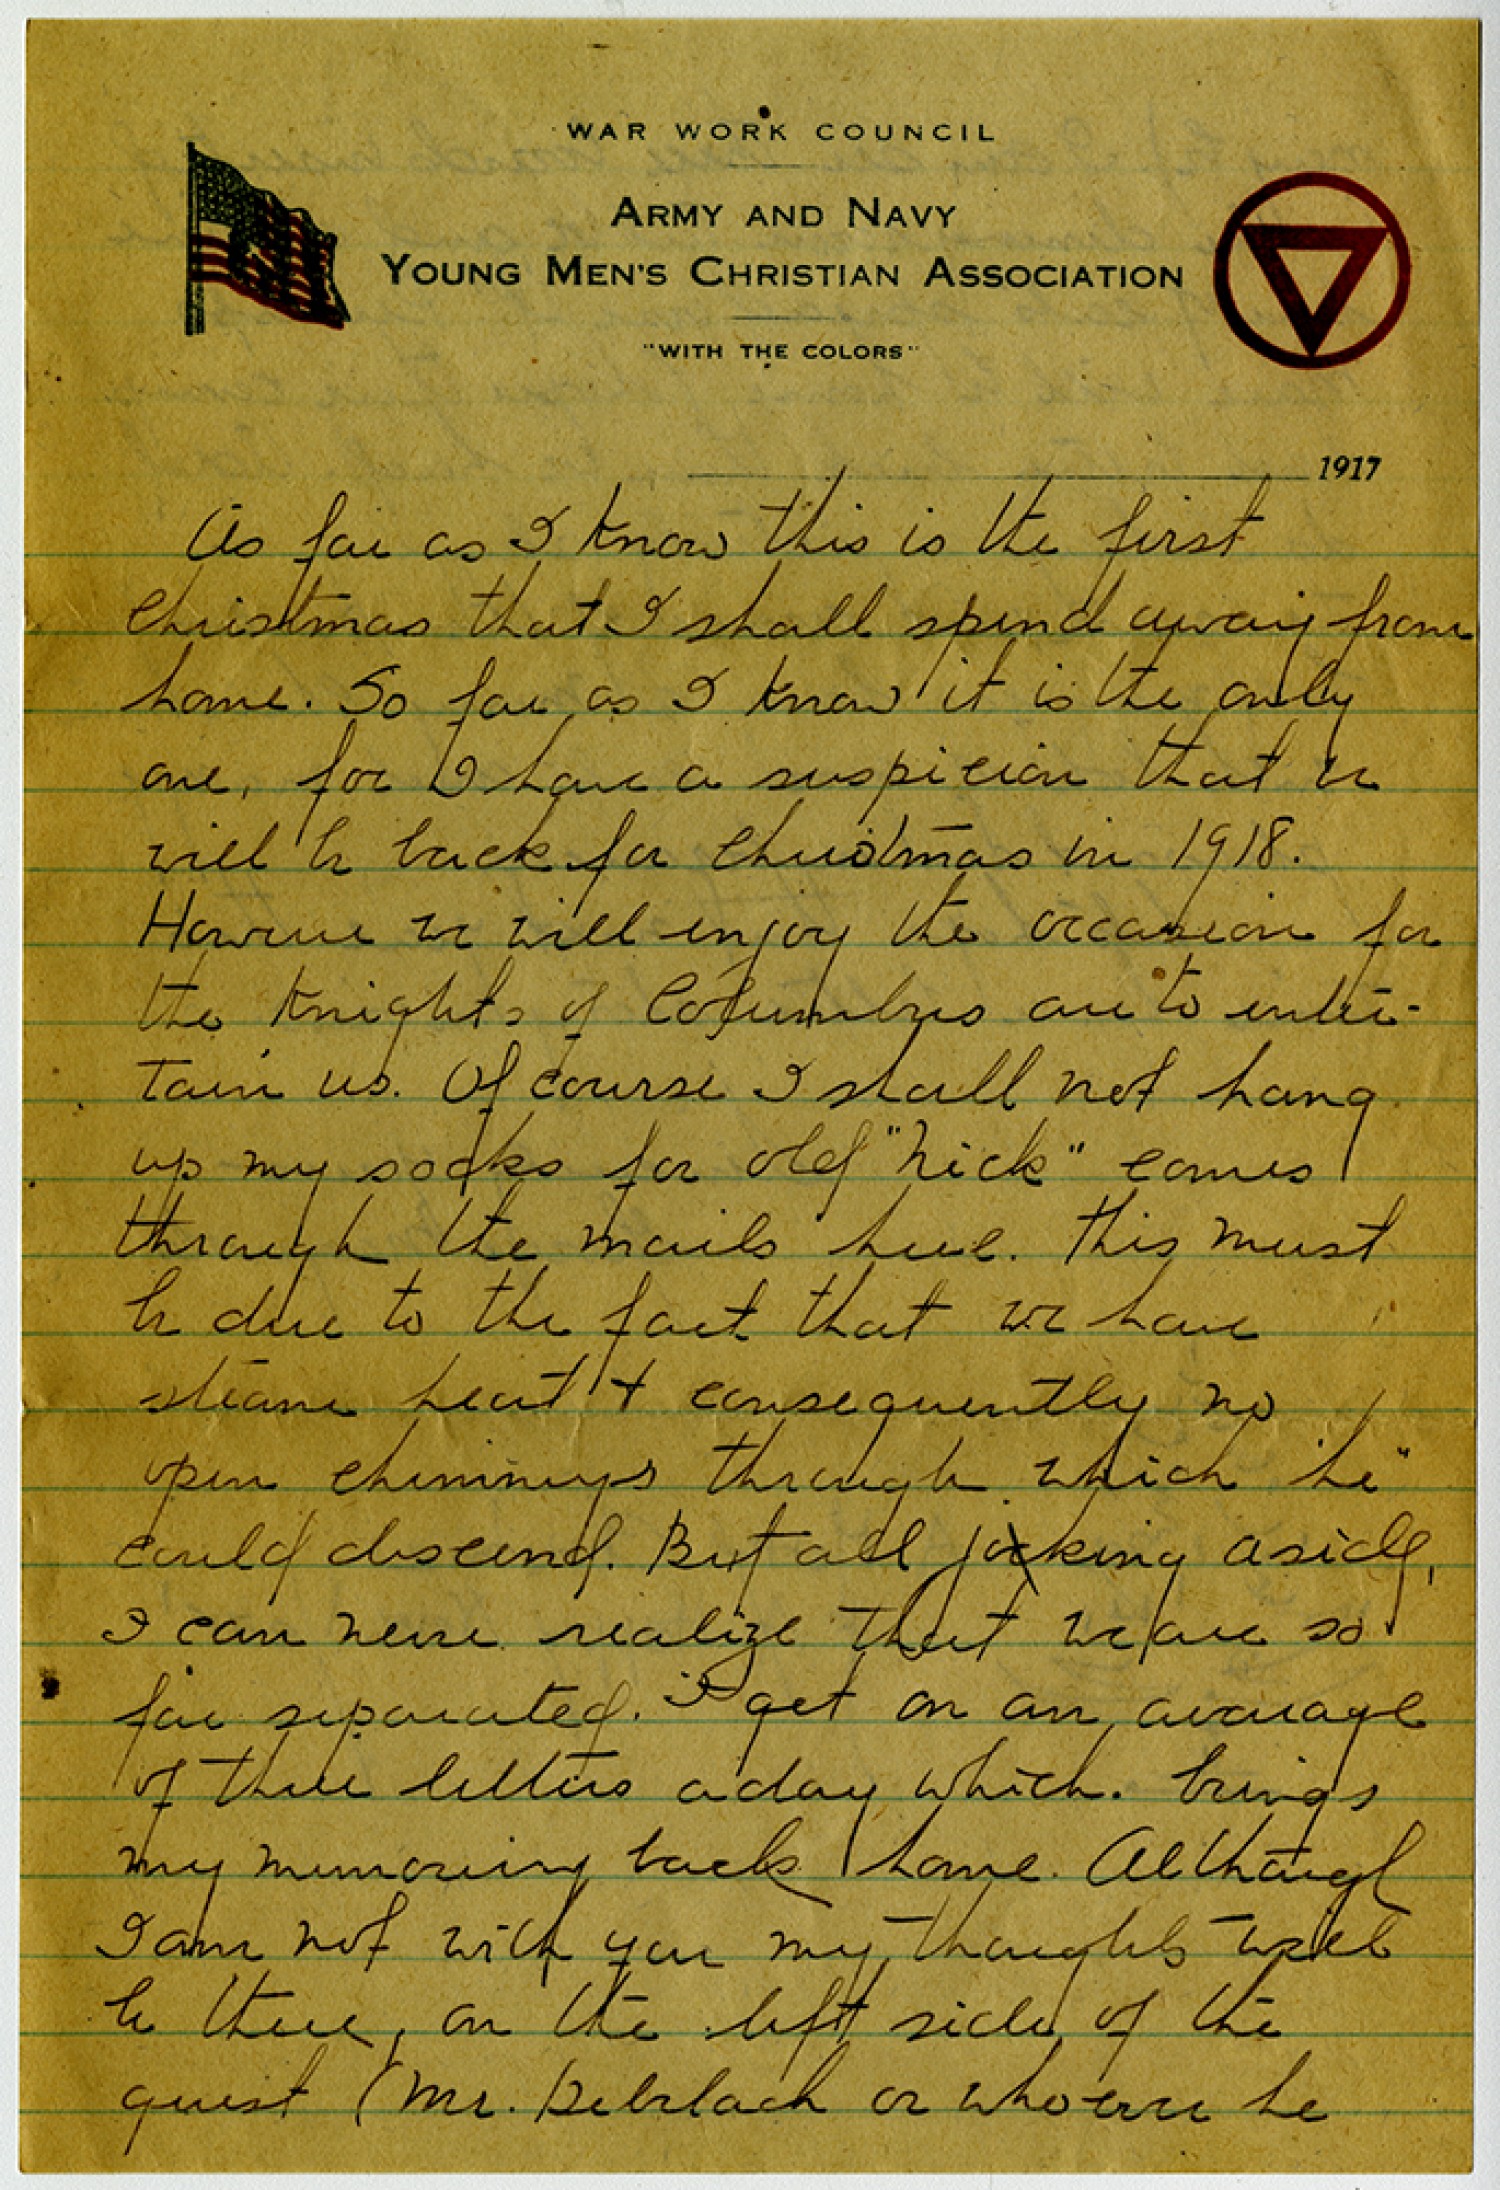 WAR WORK COUNCIL
ARMY AND NAVY
YOUNG MEN'S CHRISTIAN ASSOCIATION
"WITH THE COLORS"
1917
As far as I know this is the first
Christmas that I shall spend away from
home. So far as I know it is the only
one, for I have a suspicion that we
will be back for Christmas in 1918.
However we will enjoy the occasion for
the Knights of Columbus are to enter-
tain us. Of course I shall not hang
up my socks for old "Nick" comes
through the mails here. This must
be due to the fact that we have
steam heat + consequently no
open chimneys through which "he"
could descend. But all joking aside,
I can never realize that we are so
far separated. I get on an average
of three letters a day which brings
my back home. Although
I am not with you my thoughts will
be there, on the left side of the
guest (Mr. or whoever he